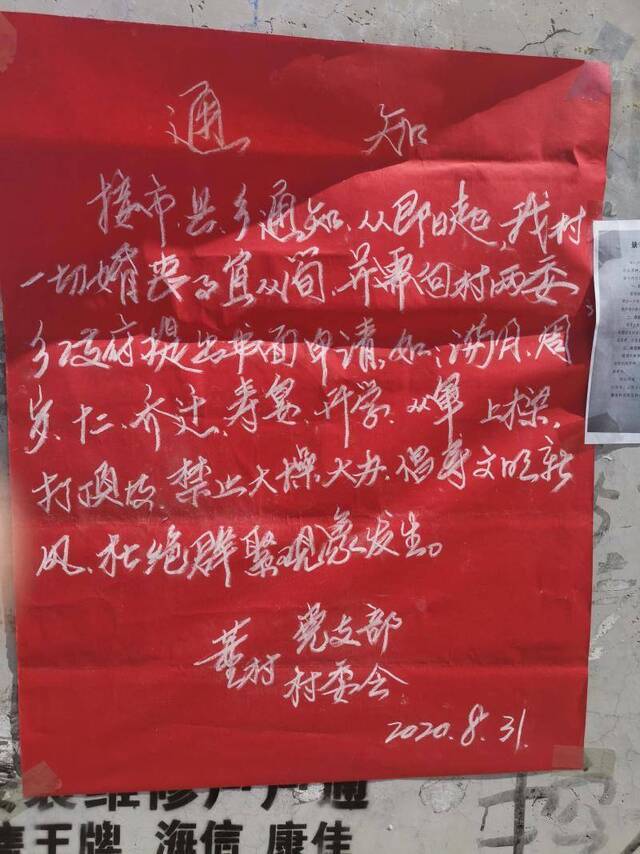 通知
接市、县、乡通知、从即日起、我村
一切婚丧事宜从简、并需向村两委
乡政府提出书面申请、如：满月、周
岁、十二、乔迁、寿宴、开学、从军、上梁、
打顶等、禁止大操、大办、倡导文明新
风、杜绝群聚现象发生。
董村 党支部
村委会
2020.8.31.
装维修户户通
王牌 海信 康佳